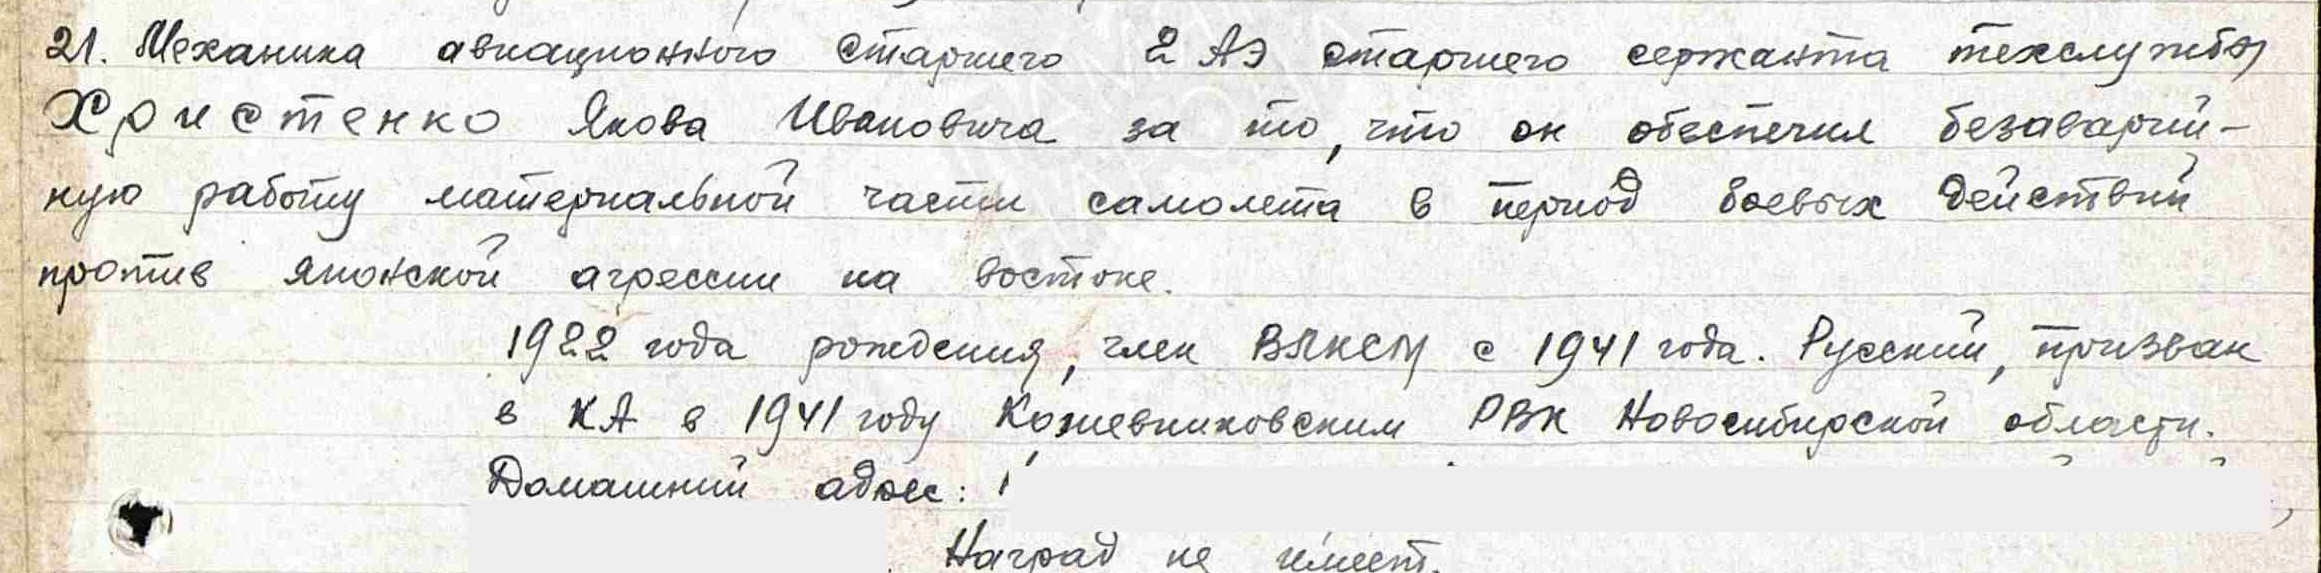 21. Механика авиационного старшего 2 АЭ старшего сержанта техслужбы
Христенко Якова Ивановича за то, что он обеспечил безаварий-
ную работу материальной части самолета в период боевых действий
против японской агрессии на востоке.
1922 года рождения, член ВЛКСМ с 1941 года. Русский, призван
в КА в 1941 году Кожевниковским РВК Новосибирской области.
Домашний адрес:
Наград не имеет.